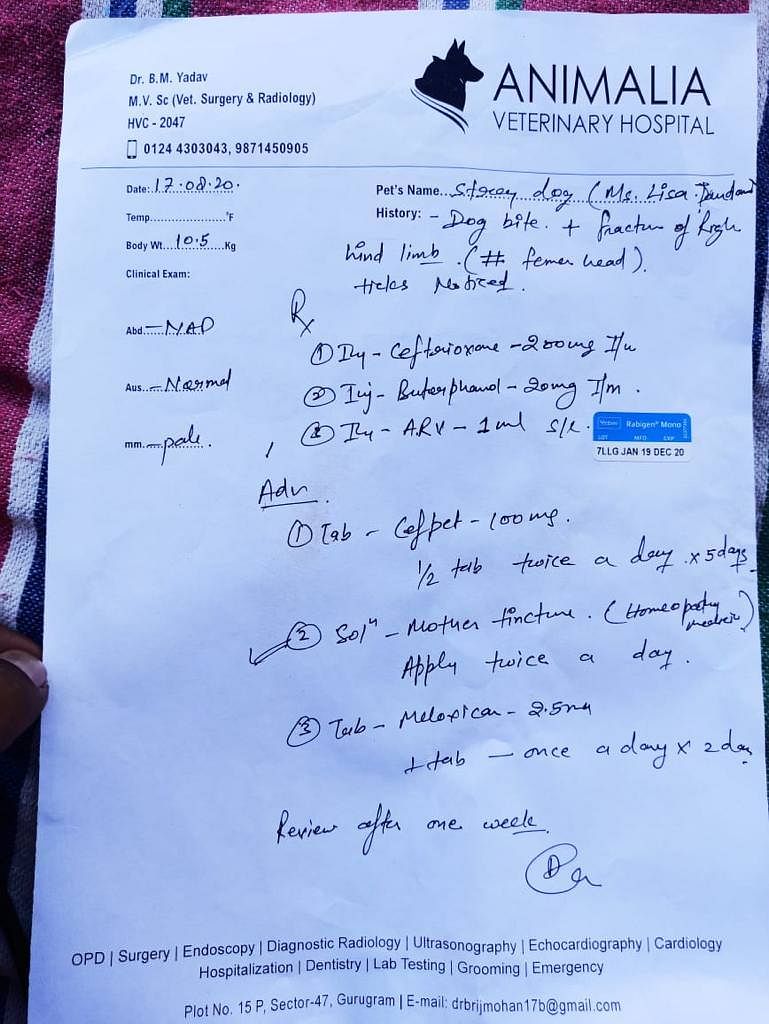 Dr. B.M. Yadav
M.V. Sc (Vet. Surgery & Radiology)
HVC - 2047
0124 4303043, 9871450905
ANIMALIA
VETERINARY HOSPITAL
Date: 17.08.20.
Pet's Name... dog (Ms. Lisa
Temp....................°F
History: - Dog bite. + fracture of Righ
Body Wt. 10.5 Kg
hind limb. (# femer head).
Clinical Exam:
ticks Noticed.
Rx
Abd.- NAD
① Inj - Ceftrioxone - 200mg
Aus. - Normal
② Inj - Butorphanol - 20mg I/m.
mm. - pale.
③ Inj - ARV - 1ml S/c.
Rabigen® Mono
LOT MFD. EXP.
7LLG JAN 19 DEC 20
Adv.
① Tab - Cefpet - 100mg.
1/2 tab twice a day x 5days
② Solⁿ - Mother tincture. (Homeopathy
Apply twice a day.
③ Tab - Meloxicam - 2.5mg
tab - once a day x 2 day
Review after one week.
OPD | Surgery | Endoscopy | Diagnostic Radiology | Ultrasonography | Echocardiography | Cardiology
Hospitalization | Dentistry | Lab Testing | Grooming | Emergency
Plot No. 15 P, Sector-47, Gurugram | E-mail: drbrijmohan17b@gmail.com